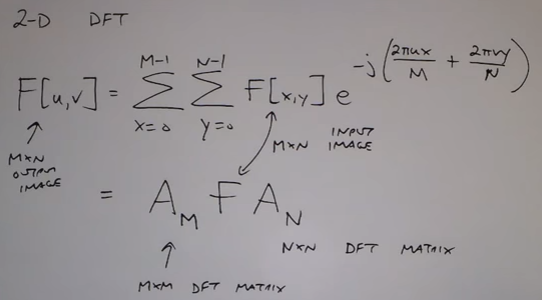 2-D DFT
F[u,v] = \sum_{x=0}^{M-1} \sum_{y=0}^{N-1} F[x,y] e^{-j(\frac{2πux}{M} + \frac{2πvy}{N})}
MXN OUTPUT IMAGE
MXN INPUT IMAGE
= A_M F A_N
NXN DFT MATRIX
MXM DFT MATRIX